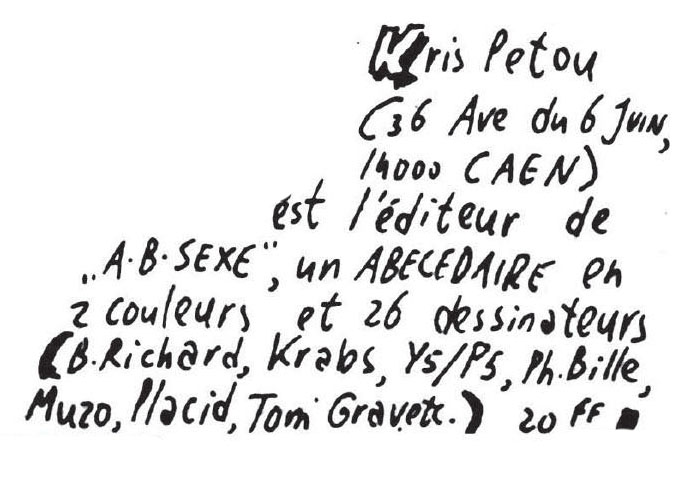 Kris Petou
(36 Ave du 6 JUIN,
14000 CAEN)
est l'éditeur de
„A·B·SEXE", un ABECEDAIRE en
2 couleurs et 26 dessinateurs
(B.Richard, Krabs, Y5/P5, Ph.Bille,
Muzo, Placid, Tom Grav.etc.) 20 FF